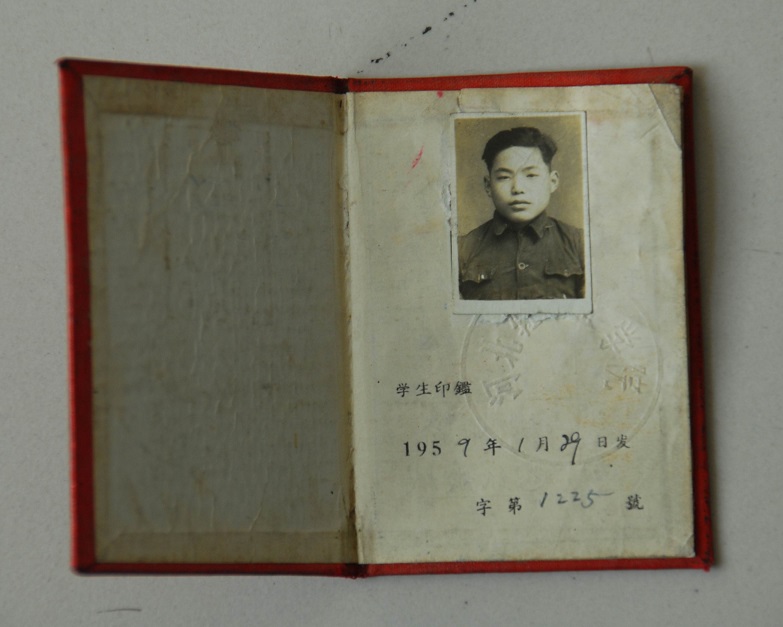 河北
学院
学生印鑑
1959年1月29日发
字第1225號